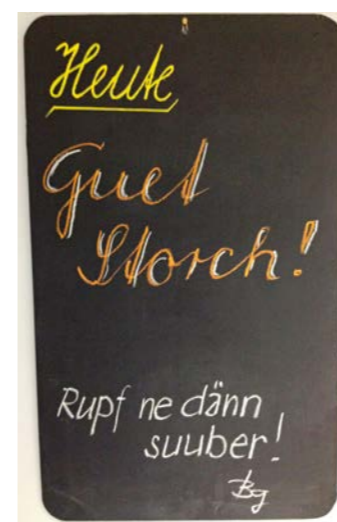 Heute
Guet
Storch!
Rupf ne dänn
suuber!
Bg